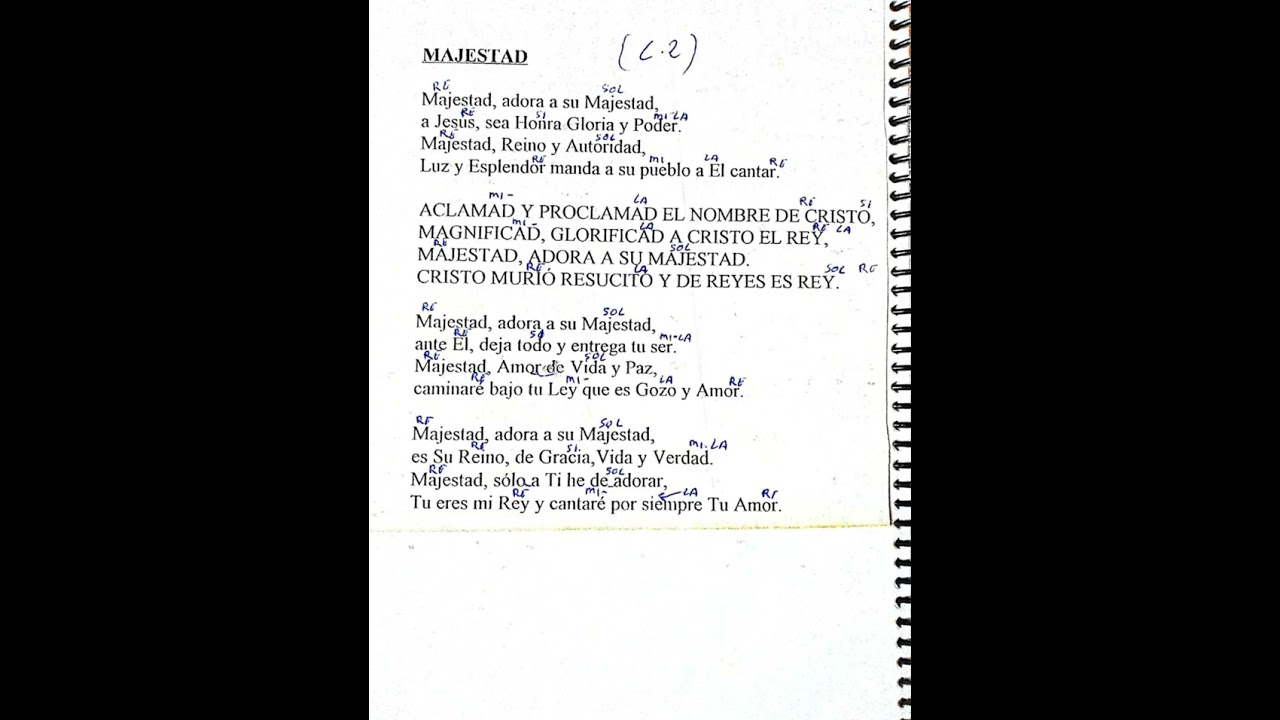 MAJESTAD (C.2)
RE SOL
Majestad, adora a su Majestad,
RE SI MI-LA
a Jesús, sea Honra Gloria y Poder.
RE SOL
Majestad, Reino y Autoridad,
RE MI LA RE
Luz y Esplendor manda a su pueblo a El cantar.
MI- LA RE SI
ACLAMAD Y PROCLAMAD EL NOMBRE DE CRISTO,
MI- LA RE LA
MAGNIFICAD, GLORIFICAD A CRISTO EL REY,
RE SOL
MAJESTAD, ADORA A SU MAJESTAD.
RE LA SOL RE
CRISTO MURIÓ RESUCITÓ Y DE REYES ES REY.
RE SOL
Majestad, adora a su Majestad,
RE MI-LA
ante El, deja todo y entrega tu ser.
RE SOL
Majestad, Amor de Vida y Paz,
RE MI- LA RE
caminaré bajo tu Ley que es Gozo y Amor.
RE SOL
Majestad, adora a su Majestad,
RE SI MI.LA
es Su Reino, de Gracia,Vida y Verdad.
RE SOL
Majestad, sólo a Ti he de adorar,
RE MI- LA RE
Tu eres mi Rey y cantaré por siempre Tu Amor.